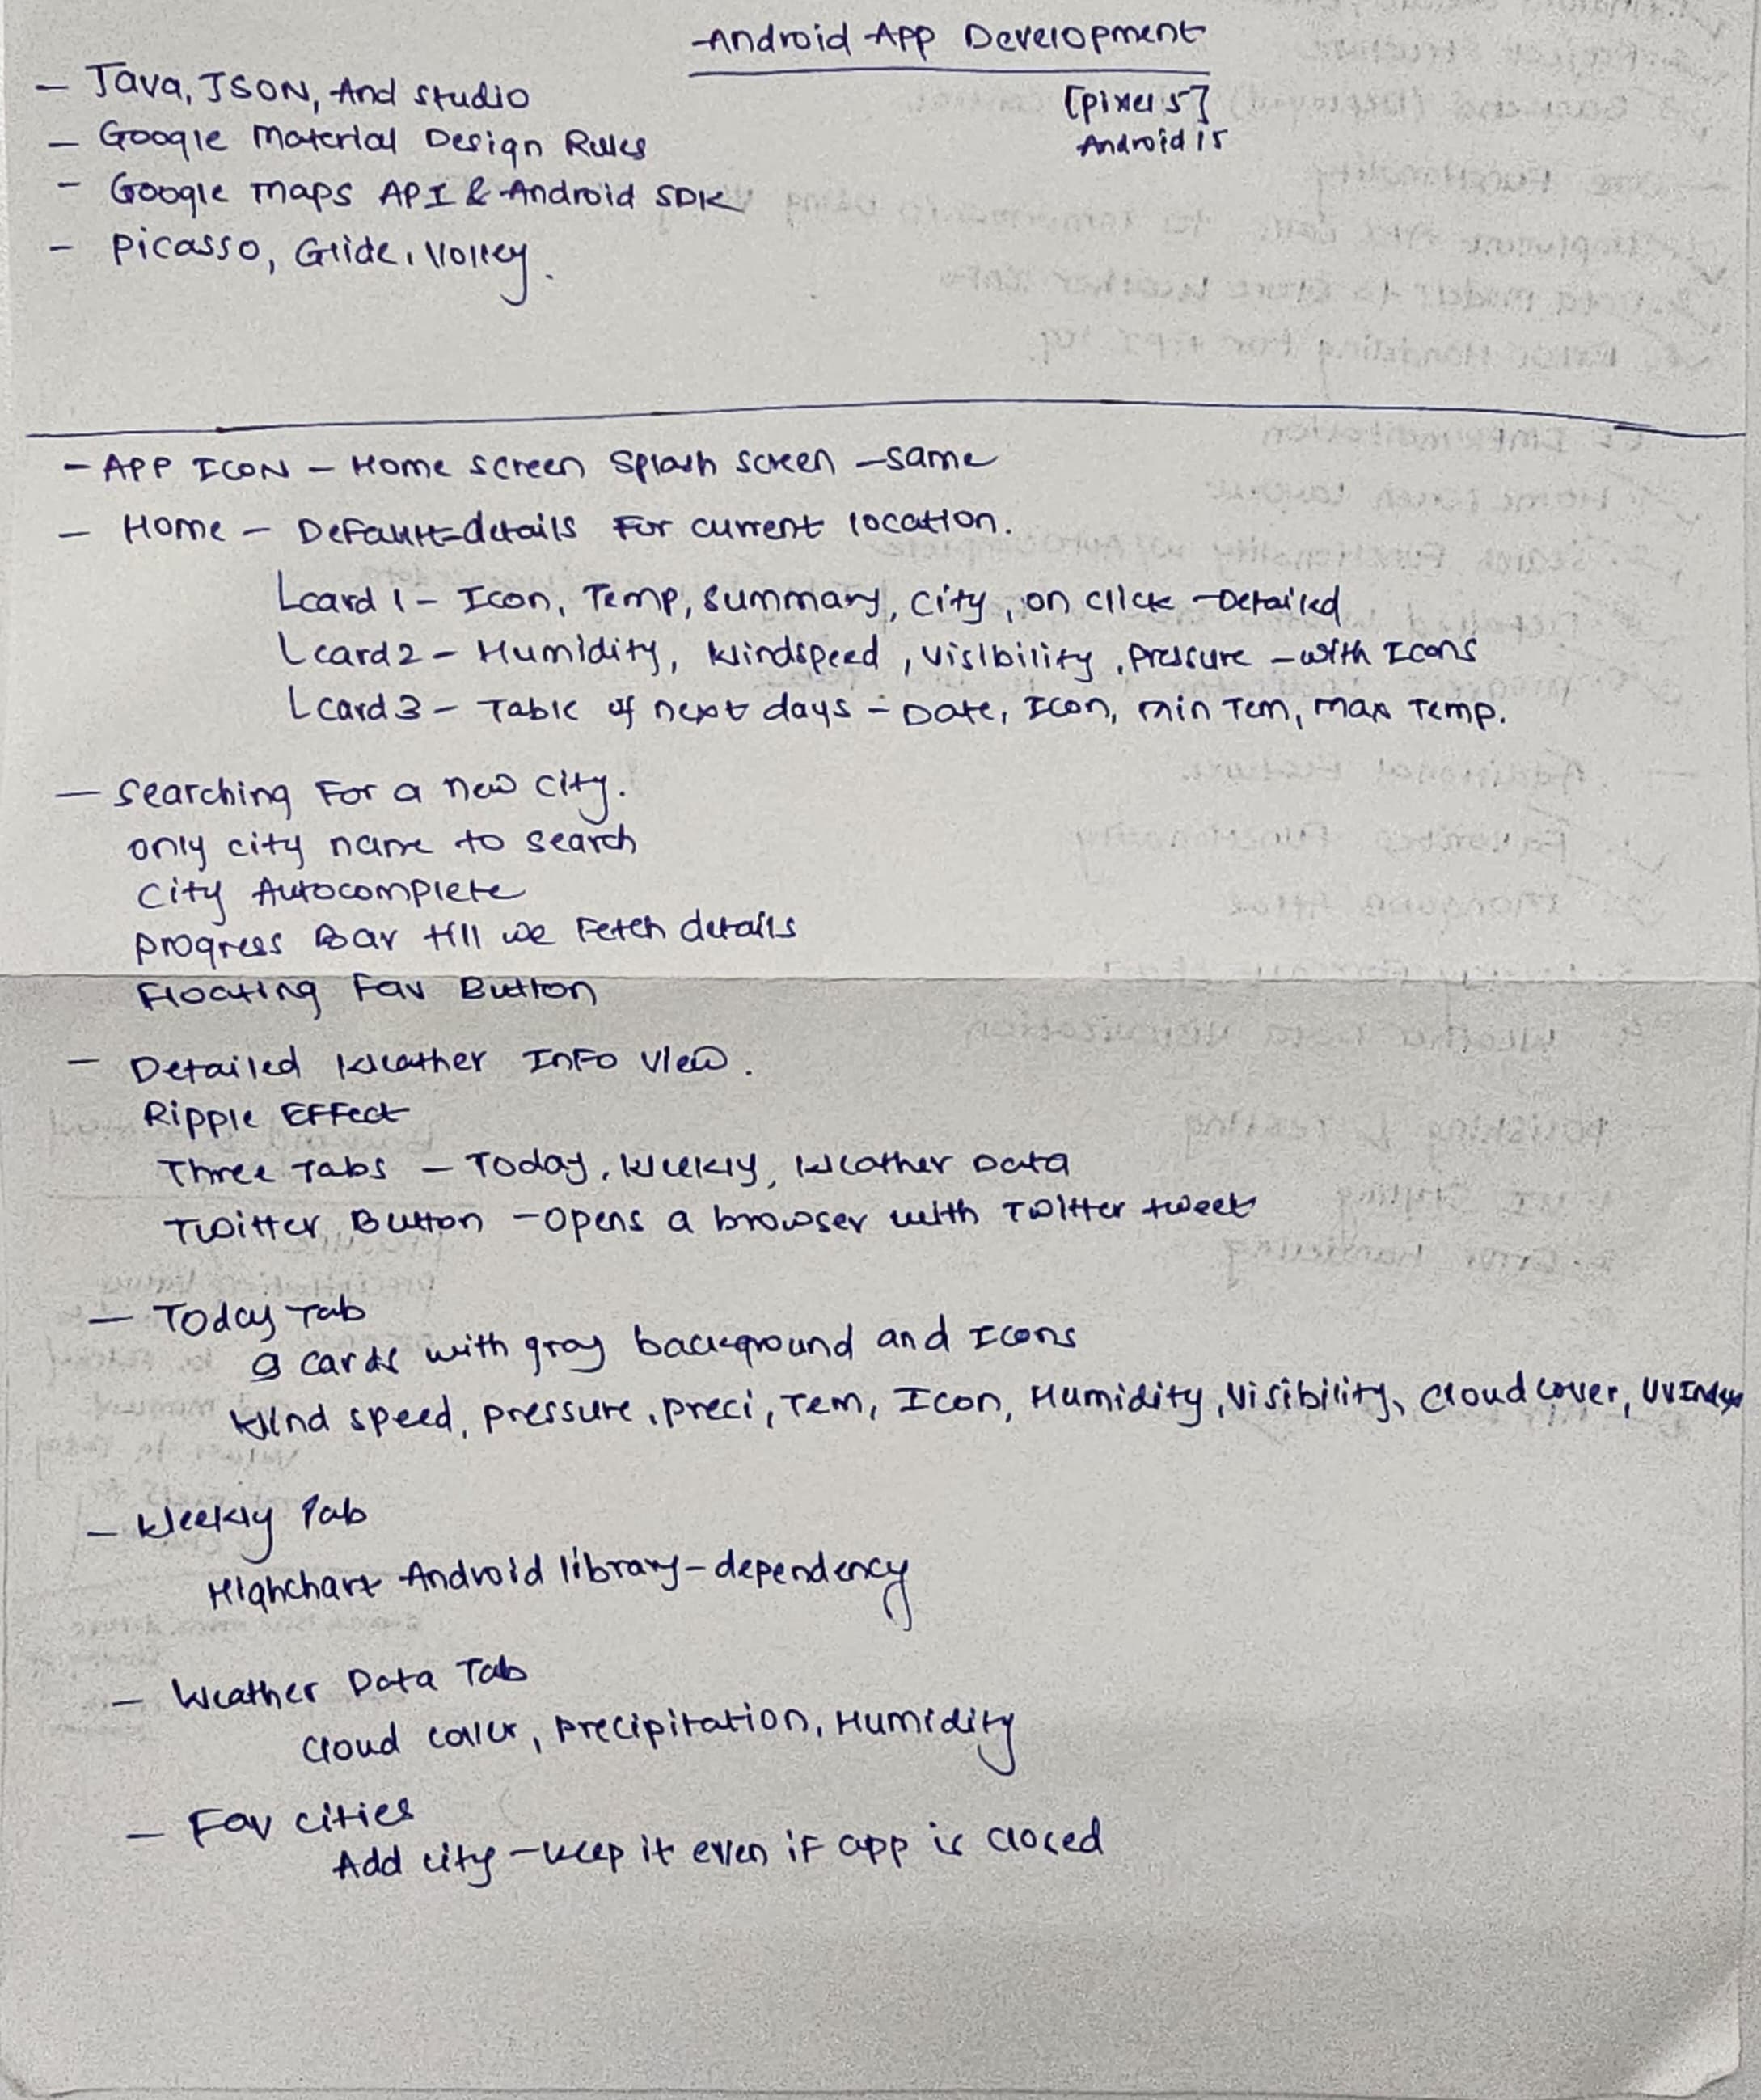 Android App Development
[Pixel 5]
Android 15
- Java, JSON, And Studio
- Google Material Design Rules
- Google Maps API & Android SDK
- Picasso, Glide, Volley.
- APP ICON - Home screen Splash screen - same
- Home - Default details For current location.
Lcard 1 - Icon, Temp, Summary, City, on click - Detailed
Lcard 2 - Humidity, Windspeed, Visibility, Pressure - with Icons
Lcard 3 - Table of next days - Date, Icon, Min Tem, Max Temp.
- Searching For a new city.
only city name to search
City Autocomplete
Progress Bar till we Fetch details
Floating Fav Button
- Detailed Weather Info View.
Ripple Effect
Three Tabs - Today, Weekly, Weather Data
Twitter Button - Opens a browser with Twitter tweet
- Today Tab
9 cards with gray background and Icons
Wind speed, pressure, preci, Tem, Icon, Humidity, Visibility, Cloud cover, UVIndex
- Weekly Tab
Highchart Android library - dependency
- Weather Data Tab
Cloud cover, Precipitation, Humidity
- Fav cities
Add city - keep it even if app is closed